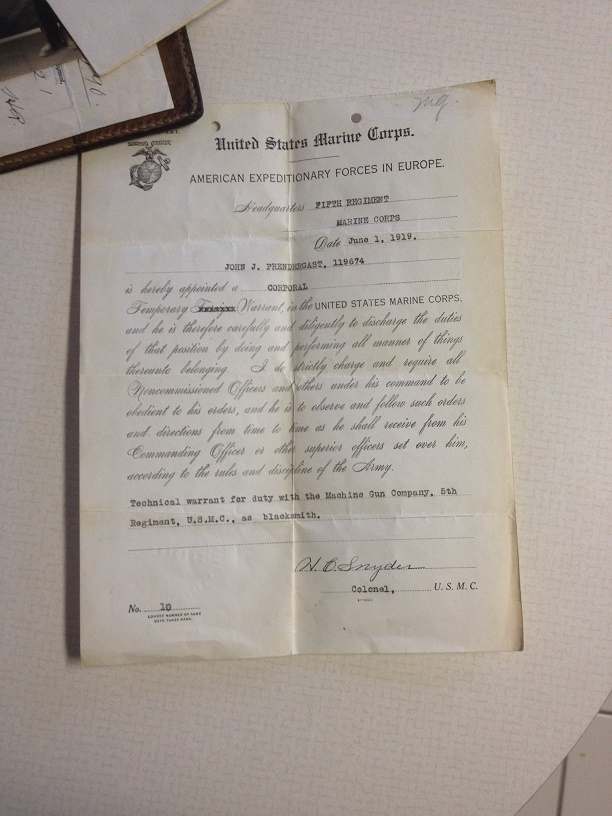 United States Marine Corps.
AMERICAN EXPEDITIONARY FORCES IN EUROPE.
Headquarters FIFTH REGIMENT
MARINE CORPS
Date June 1, 1919.
JOHN J. PRENDERGAST, 119674
is hereby appointed a CORPORAL
Temporary Warrant, in the UNITED STATES MARINE CORPS,
and he is therefore carefully and diligently to discharge the duties
of that position by doing and performing all manner of things
thereunto belonging. I do strictly charge and require all
Noncommissioned Officers and others under his command to be
obedient to his orders, and he is to observe and follow such orders
and directions from time to time as he shall receive from his
Commanding Officer or other superior officers set over him,
according to the rules and discipline of the Army.
Technical warrant for duty with the Machine Gun Company, 5th
Regiment, U.S.M.C., as blacksmith.
H. C. Snyder
Colonel, U. S. M. C.
No. 10